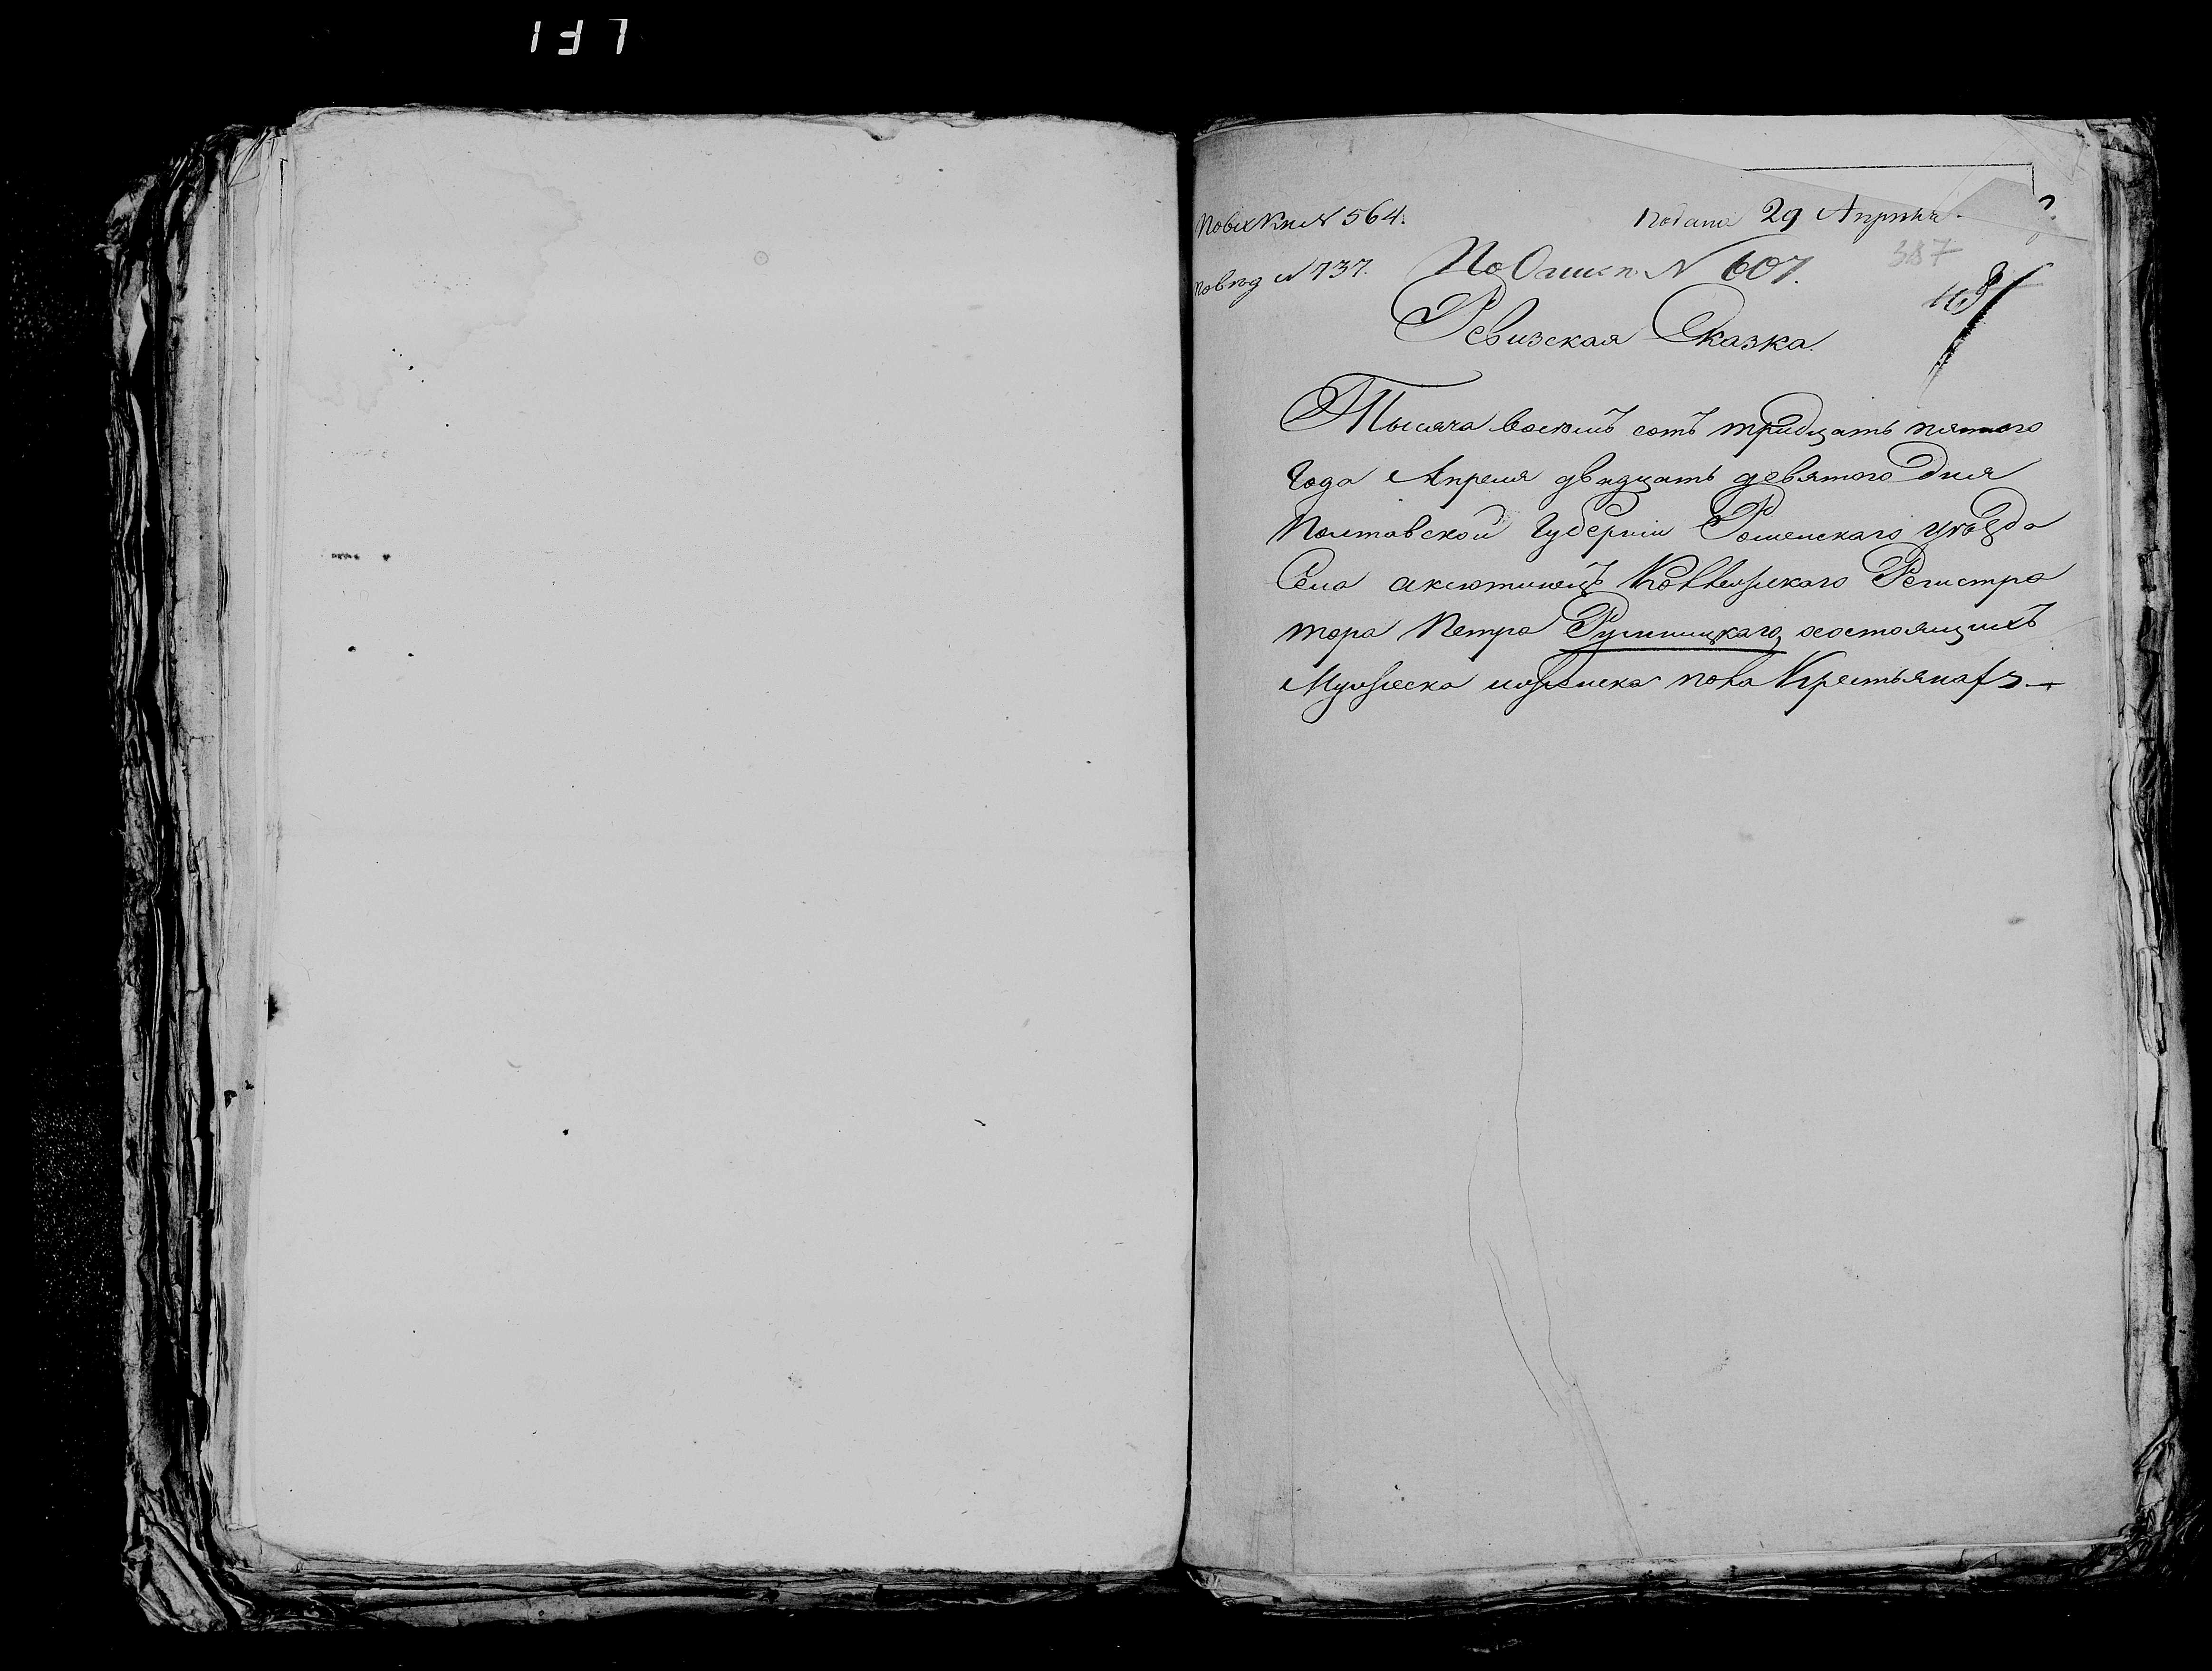 Подана 29 Апреля.
По вх Кн N 564.
По N 607.
387
по вѣд N 737.
Ревизская Сказка.
Тысяча восемь сотъ тридцать пятого
года Апреля двадцать девятого Дня
Полтавской Губерніи Роменского уѣзда
Села аксютинецъ Коллежского Регистра
тора Петра осостоящихъ
Мужеска иженска пола Крестьянахъ